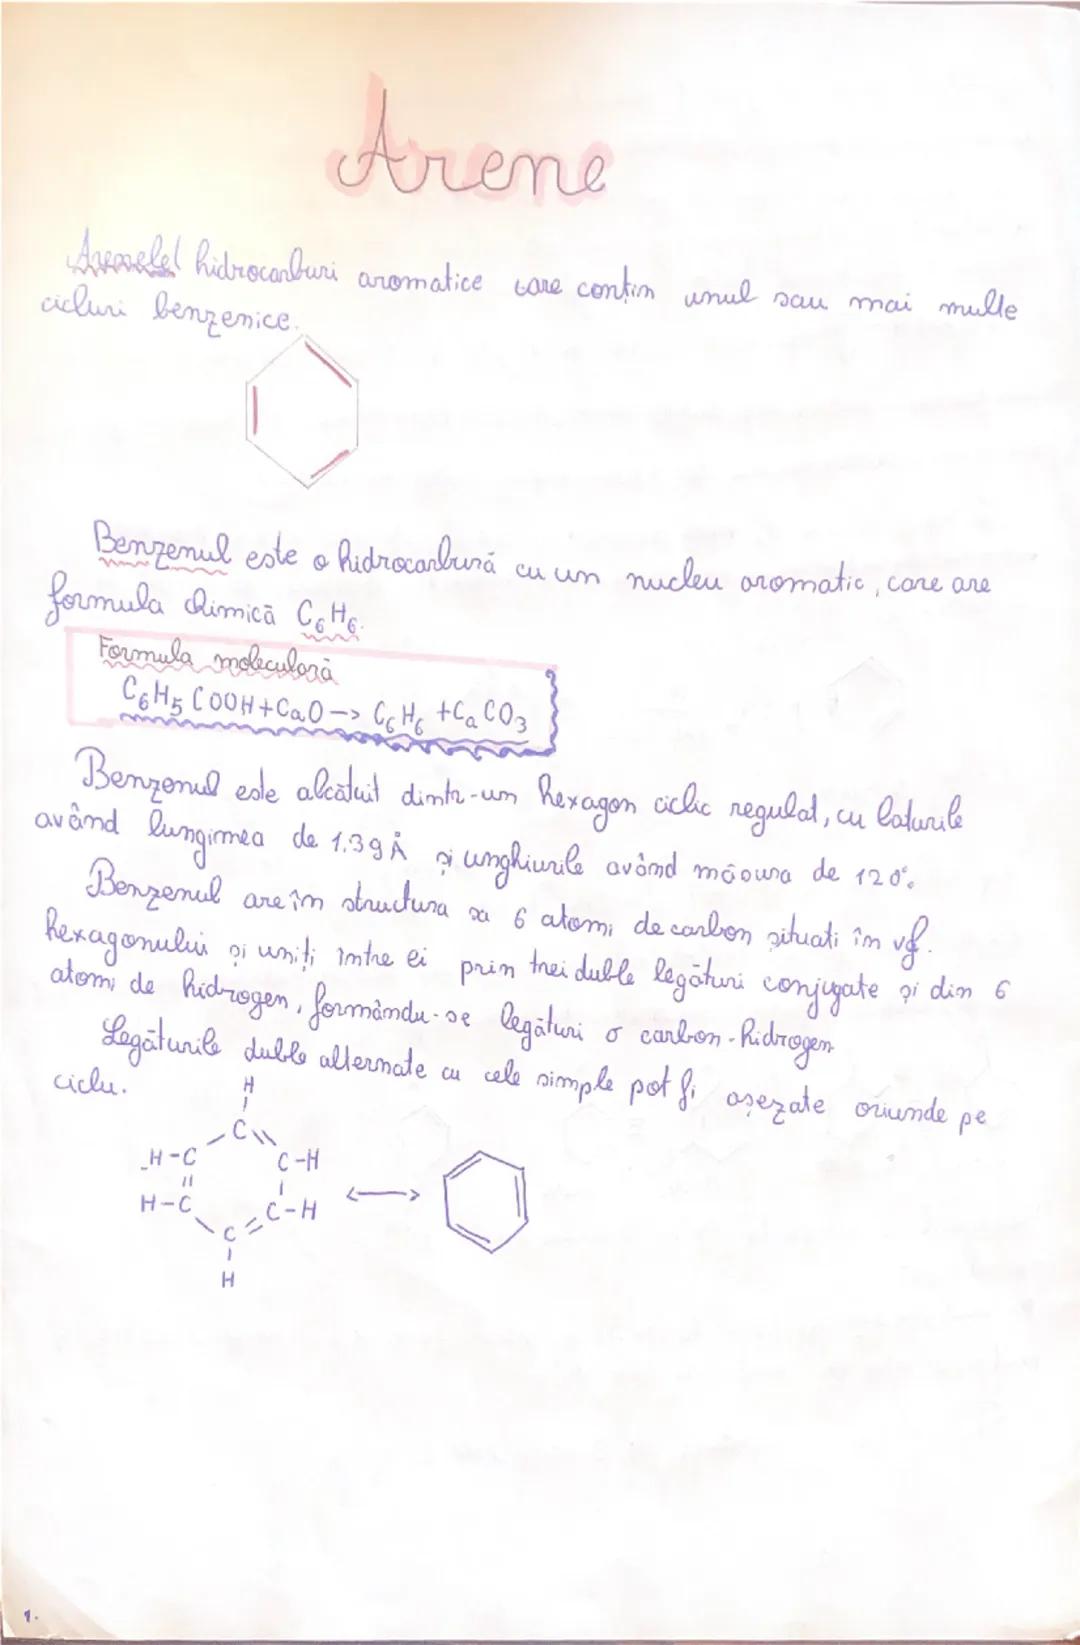 Arene
Arenele! hidrocarburi aromatice care conțin unul sau mai multe
cicluri benzenice.
Benzenul este o hidrocarbură cu un nucleu aromatic, care are
formula chimică C₆H₆.
Formula moleculară
C₆H₅COOH+CaO-> C₆H₆ +CaCO₃
Benzenul este alcătuit dintr-un hexagon ciclic regulat, cu laturile
având lungimea de 1.39 Å și unghiurile având măsura de 120°.
Benzenul are în structura sa 6 atomi de carbon situati în vf.
hexagonului și uniți între ei prin trei duble legături conjugate și din 6
atomi de hidrogen, formându-se legături σ carbon-hidrogen
Legăturile duble alternate cu cele simple pot fi așezate oriunde pe
ciclu.
H
C
H-C C-H
H-C C-H
C
H
1.